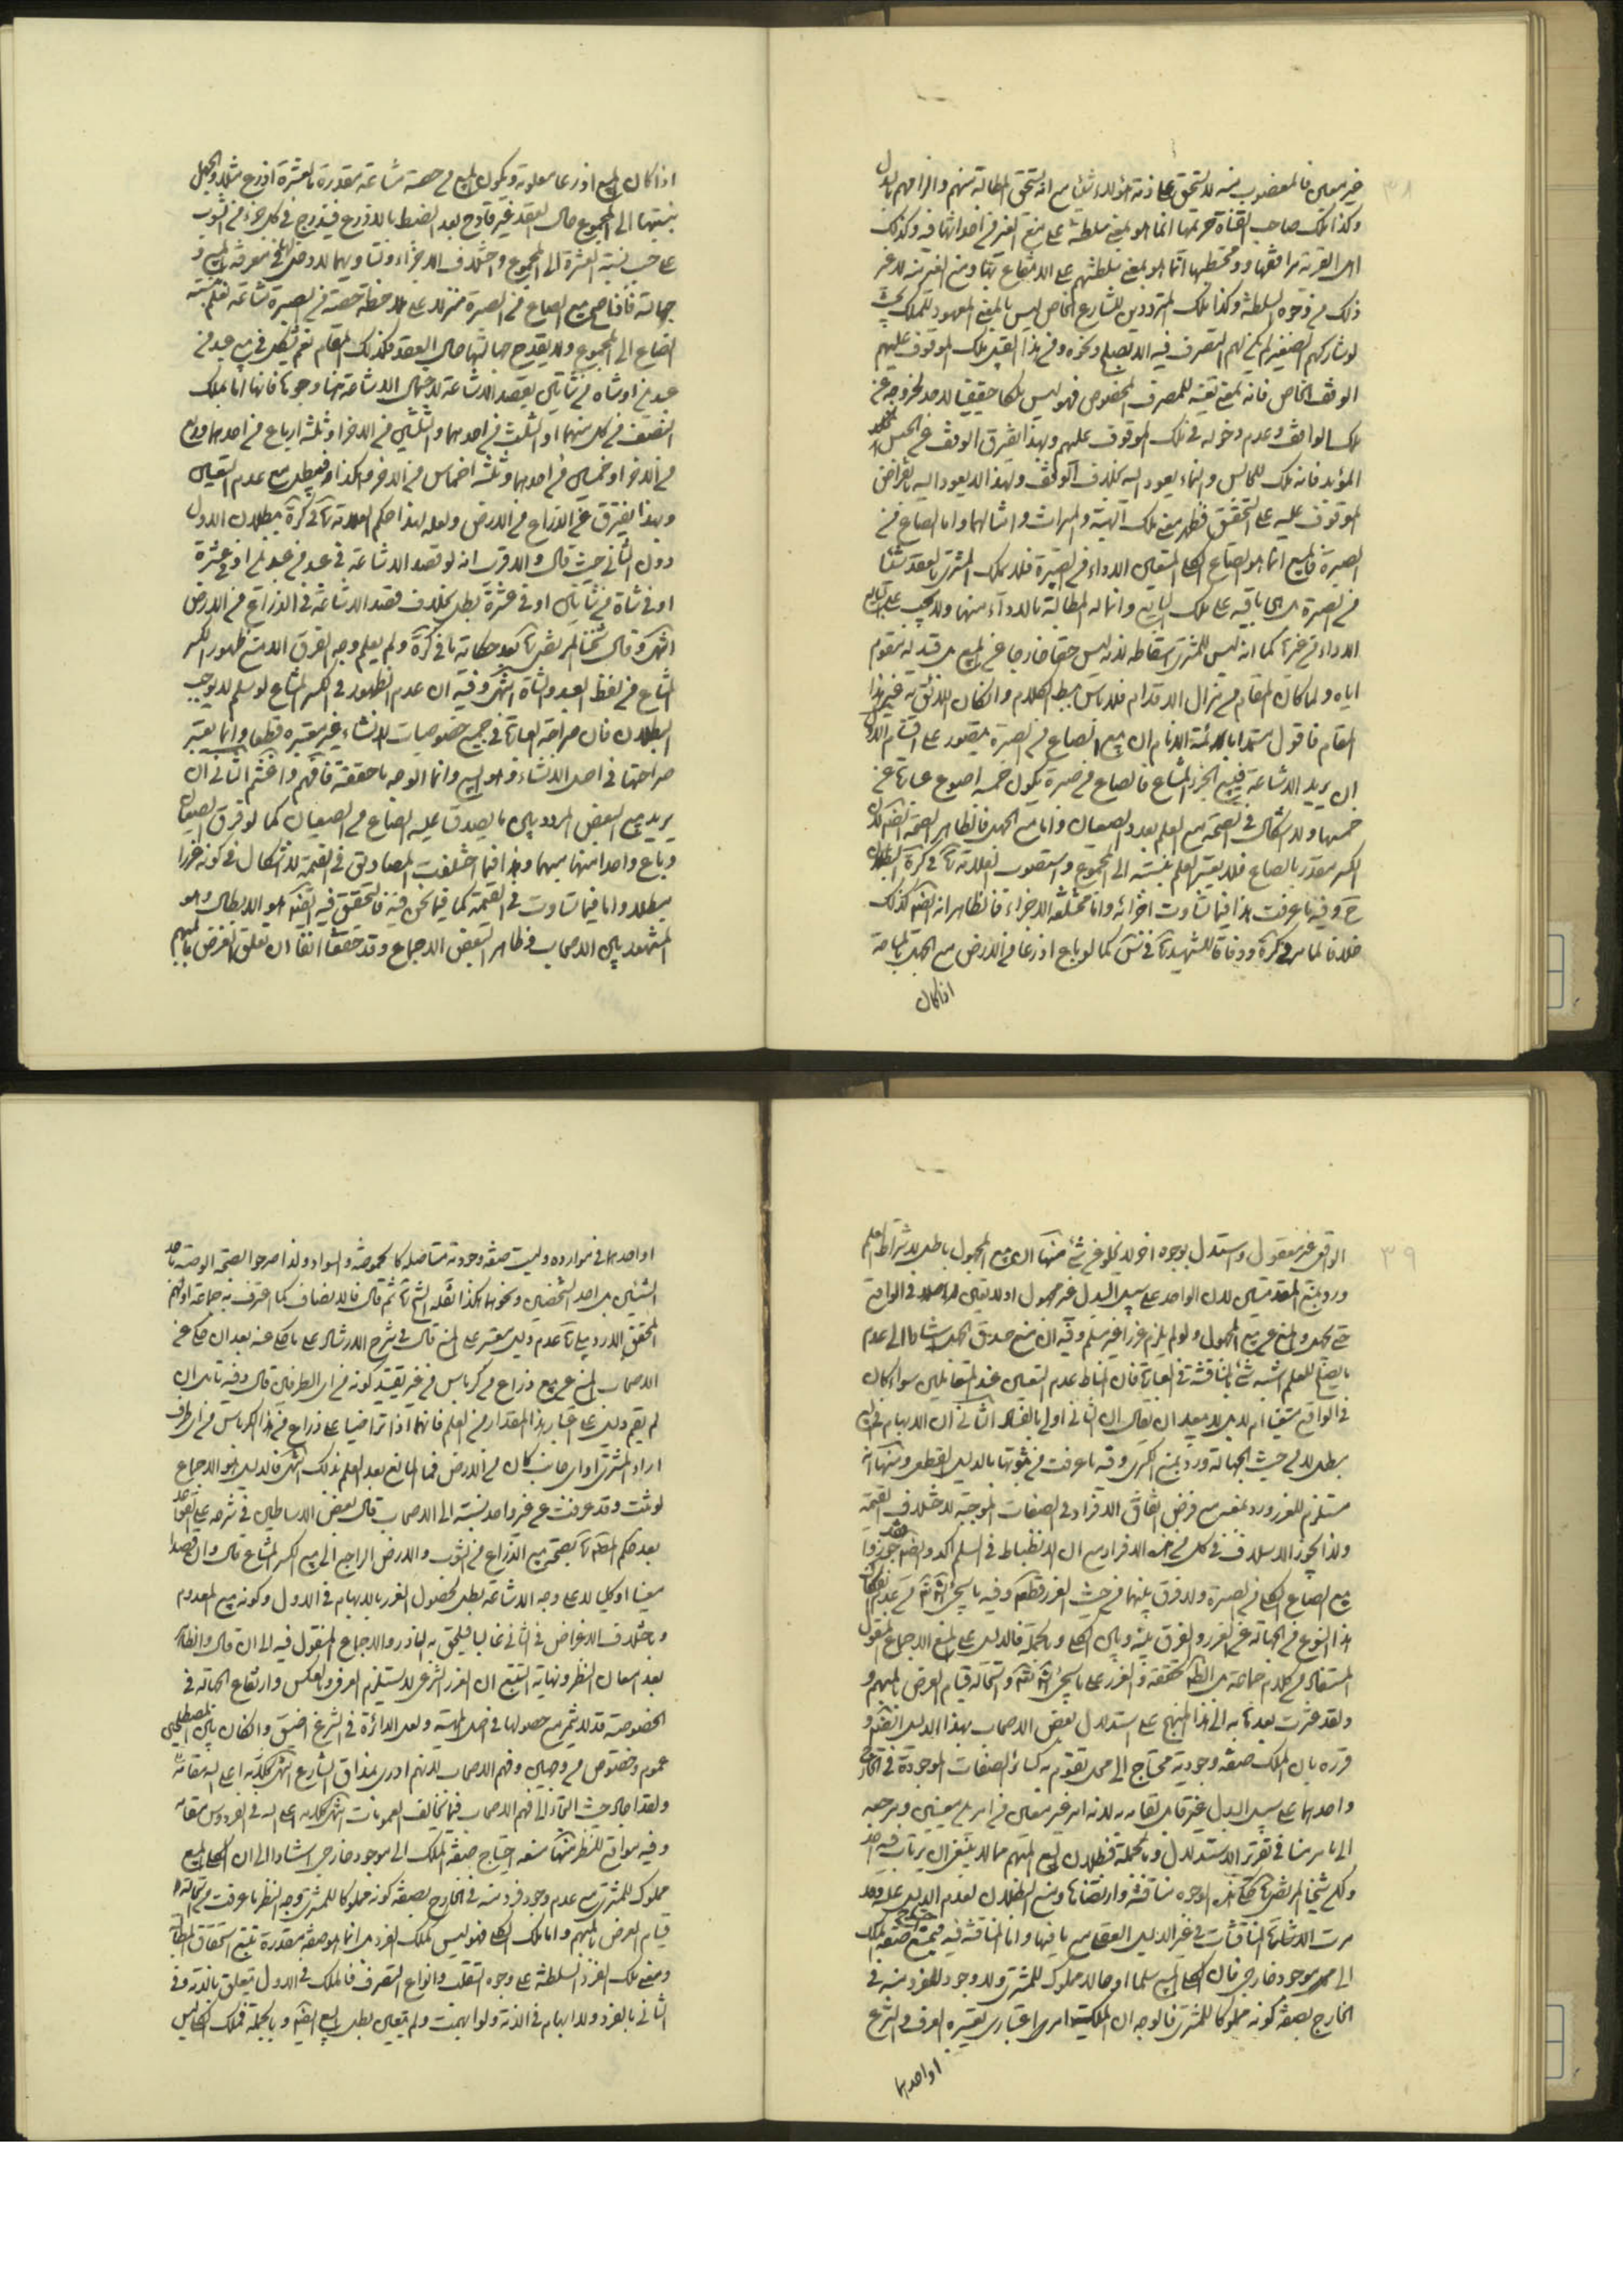 ٣٨
وكذا ملك صاحب القناة حريمها انما هو بمعنى سلطنته على منع الغير في احداثها فيه وكذلك
اهل القرية مرافقها ومحتطبها انما هو بمعنى سلطنتهم على الانتفاع بها ومنع الغير منه لا غير
ذلك من وجوه السلطنة وكذا ملك المترددين للشارع الخاص ليس بالمعنى المعهود للملك
لو شاركهم الصغير لم يكن لهم التصرف فيه الا بصلح ونحوه ومن هذا القبيل ملك الموقوف عليهم
الوقف الخاص فانه بمعنى تعينه للمصرف المخصوص فهو ليس ملكا حقيقيا لاحد لخروجه عن
ملك الواقف وعدم دخوله في ملك الموقوف عليهم وبهذا يفترق الوقف عن الحبس
المؤبد فانه ملك للحابس والنماء يعود اليه بخلاف الوقف ولهذا لا يعود اليه بانقراض
الموقوف عليه على التحقيق فظهر معنى ملك الهبة والميراث وامثالهما واما الصاع من
الصبرة فالمبيع انما هو الصاع الكلي المتعين الاداء من الصبرة فلا يملك المشتري بالعقد شيئا
من الصبرة بل هي باقية على ملك البايع وانما له المطالبة بالاداء منها ولا يجب على البايع
الاداء من غيرها كما انه ليس للمشتري اسقاطه لانه ليس حقا خارجا عن المبيع بل قيد له مقوم
اياه ولما كان المقام من مزال الاقدام فلا باس ببسط الكلام وان كان اللائق به غير هذا
المقام فاقول مستمدا بالائمة الانام ان بيع الصاع من الصبرة يتصور على اقسام الاول
ان يريد الاشاعة فيبيع الجزء المشاع فالصاع من صبرة يكون خمسة اصوع عبارة عن
خمسها ولا اشكال في الصحة مع العلم بعدد الصيعان واما مع الجهل فالظاهر الصحة ايضا لان
الكسر مقدر بالصاع فلا يعتبر العلم بنسبته الى المجموع واستصوب العلامة في كرة البطلان
ح وفيه ما عرفت هذا فيما تساوت اجزائه واما مختلفة الاجزاء فالظاهر انه ايضا كذلك
خلافا لما في كرة ووفاقا للشهيد في س كما لو باع اذرعا من الارض مع الجهل بالمساحة
اذا كان
اذا كان المبيع اذرعا معلومة ويكون المبيع من حصة مشاعة مقدرة بالعشرة اذرع مثلا والجهل
بنسبتها الى المجموع حال العقد غير قادح بعد الضبط بالاذرع فيندرج في كل جزء من الثوب
على حسب نسبة العشرة الى المجموع واختلاف الاجزاء وتساويهما لا دخل له في معرفة المبيع و
جهالته فافهم بيع الصاع من الصبرة منزلا على ملاحظة حصة من الصبرة مشاعة تعلم بنسبة
الصاع الى المجموع ولا يقدح جهالتها حال العقد فكذلك المقام نعم يشكل في بيع عبد من
عبدين او شاة من شاتين بقصد الاشاعة لاجمال الاشاعة هنا وجوها فانها اما بملك
النصف من كل منهما او الثلث من احدهما والثلثين من الاخر او ثلثة ارباع من احدهما وربع
من الاخر او خمسين من احدهما وثلثة اخماس من الاخر وهكذا فيبطل مع عدم التعيين
وبهذا يفترق عن الذراع من الارض ولعله لهذا حكم العلامة في كرة ببطلان الاول
دون الثاني حيث قال والاقرب انه لو قصد الاشاعة في عبد من عبدين او في عشرة
او في شاة من شاتين او في عشرة بطل بخلاف قصد الاشاعة في الذراع من الارض
انتهى وقال شيخنا المرتضى بعد حكاية ما في كرة ولم يعلم وجه الفرق الا منع ظهور الكسر
المشاع من لفظ العبد والشاة انتهى وفيه ان عدم الظهور في الكسر المشاع لو سلم لا يوجب
البطلان فان صراحة العبارة في جميع خصوصيات الانشاء غير معتبرة قطعا وانما يعتبر
صراحتها في اصل الانشاء وهو البيع وانما الوجه ما حققنا فافهم واغتنم الثاني ان
يريد بيع البعض المردد بين ما يصدق عليه الصاع من الصيعان كما لو فرق الصيعان
وباع واحدا منها مبهما وهذا فيما اختلفت المصاديق في القيمة لا اشكال في كونه غررا
مبطلا واما فيما تساوت في القيمة كما فيما نحن فيه فالتحقيق فيه ايضا هو البطلان وهو
المشهور بين الاصحاب وظاهر البعض الاجماع وقد حققنا انفا ان تعلق الغرض بالمبهم
٣٩
الواقعي غير معقول واستدل بوجوه اخر لا تخلو عن شئ منها ان بيع المجهول باطل لاشتراط العلم
ورد بمنع المقدمتين لان الواحد على سبيل البدل غير مجهول اذ لا تعين له اصلا في الواقع
حتى يجهل والمنع عن بيع المجهول ولو لم يلزم غررا غير مسلم وفيه ان منع صدق الجهل استنادا الى عدم
ما يصلح للعلم اشبه شئ بالمناقشة في العبارة فان المناط عدم التعين عند المتعاملين سواء كان
في الواقع متعينا ام لا بل لا يبعد ان يقال ان الثاني اولى بالفساد الثاني ان الابهام في البيع
مبطل لا من حيث الجهالة ورد بمنع الكبرى وفيه ما عرفت من ثبوتها بالدليل القطعي ومنها انه
مستلزم للغرر ورد بمنعه مع فرض اتفاق الافراد في الصفات الموجبة لاختلاف القيمة
ولذا يجوز الاسلاف في كلي من هذه الافراد مع ان الانضباط في السلم اكد وايضا فقد جوزوا
بيع الصاع الكلي من الصبرة ولا فرق بينهما من حيث الغرر قطعا وفيه ما سيجئ انشاء الله من عدم انفكاك
هذا النوع من الجهالة عن الغرر والفرق بينه وبين الكلي وبالجملة فالدليل على المنع الاجماع المنقول
المستفاد من كلام جماعة بل الظاهر تحققه والغرر على ما سيجئ انشاء الله واستحالة قيام العرض بالمبهم و
لقد عثرت بعد ما نبه الى هذا المنهج على استدلال بعض الاصحاب بهذا الدليل ايضا و
قرره بان الملك صفة وجودية محتاج الى محل تقوم به كسائر الصفات الموجودة في الخارج
واحدهما على سبيل البدل غير قابل لقيامه به لانه امر غير متعين في امرين معينين ومرجعه
الى ما مر منا في تقرير الاستدلال وبالجملة فبطلان بيع المبهم مما لا ينبغي ان يرتاب فيه احد
ولكن شيخنا المرتضى بعد حكاية هذه الوجوه مناقشة وارتضاها ومنع البطلان لعدم الدليل عليه وقد
مرت الاشارة الى المناقشات في غير الدليل العقلي مع ما فيها واما المناقشة فيه فبمنع احتياج صفة الملك
الى موجود خارجي فان الكلي المبيع سلما او حالا مملوك للمشتري ولا وجود لفرد منه في
الخارج بصفة كونه مملوكا للمشتري فالوجه ان الملكية امر اعتباري يعتبره العرف والشرع
او احدهما
او احدهما في موارده وليست صفة وجودية متاصلة كالحموضة والسواد ولذا صرحوا بصحة الوصية باحد
الشيئين بل لاحد الشخصين ونحوهما هكذا نقله ثم قال فالانصاف كما اعترف به جماعة اولهم
المحقق الاردبيلي عدم دليل معتبر على المنع قال في شرح الارشاد على ما حكي عنه بعد ان حكى عن
الاصحاب المنع عن بيع ذراع من كرباس من غير تقييد كونه من اي الطرفين قال وفيه تامل ان
لم يقم دليل على اعتبار هذا المقدار من العلم فانهما اذا تراضيا على ذراع من هذا الكرباس من اي طرف
اراد المشتري او اي جانب كان من الارض فما المانع بعد العلم بذلك انتهى فالدليل هو الاجماع
لو ثبت وقد عرفت عن غير واحد نسبته الى الاصحاب قال بعض الاساطين في شرحه على القواعد
بعد حكم المصنف بصحة بيع الذراع من الثوب والارض الراجع الى بيع الكسر المشاع قال وان قصدا
معينا او كليا لا على وجه الاشاعة بطل لحصول الغرر بالابهام في الاول وكونه بيع المعدوم
وباختلاف الاغراض في الثاني غالبا فيلحق به النادر والاجماع المنقول فيه الى ان قال والظاهر
بعد امعان النظر ونهاية التتبع ان الغرر الشرعي لا يستلزم العرفي وبالعكس وارتفاع الجهالة في
الخصوصية قد لا يثمر مع حصولها في اصل المهية ولعل الدائرة في الشرع اضيق وان كان بين المصطلحين
عموم وخصوص من وجهين وفهم الاصحاب لانهم ادرى بمذاق الشارع انتهى كلامه اعلى الله مقامه
ولقد اجاد حيث التجأ الى فهم الاصحاب فيما يخالف العمومات انتهى كلامه اعلى الله في الفردوس مقامه
وفيه مواقع للنظر منها منعه احتياج صفة الملك الى موجود خارجي استنادا الى ان الكلي المبيع
مملوك للمشتري مع عدم وجود فرد منه في الخارج بصفة كونه مملوكا للمشتري وجه النظر ما عرفت من استحالة
قيام العرض بالمبهم واما ملك الكلي فهو ليس لملك الفرد بل انما هو صفة مقدرة تتبع استحقاق المطالبة
ومعنى ملك الفرد السلطنة على وجوه التقلب وانواع التصرف فالملك في الاول يتعلق بالذمة وفي
الثاني بالفرد ولا ابهام في الذمة ولو ابهمت ولم تتعين بطل البيع ايضا وبالجملة فملك الكلي ليس